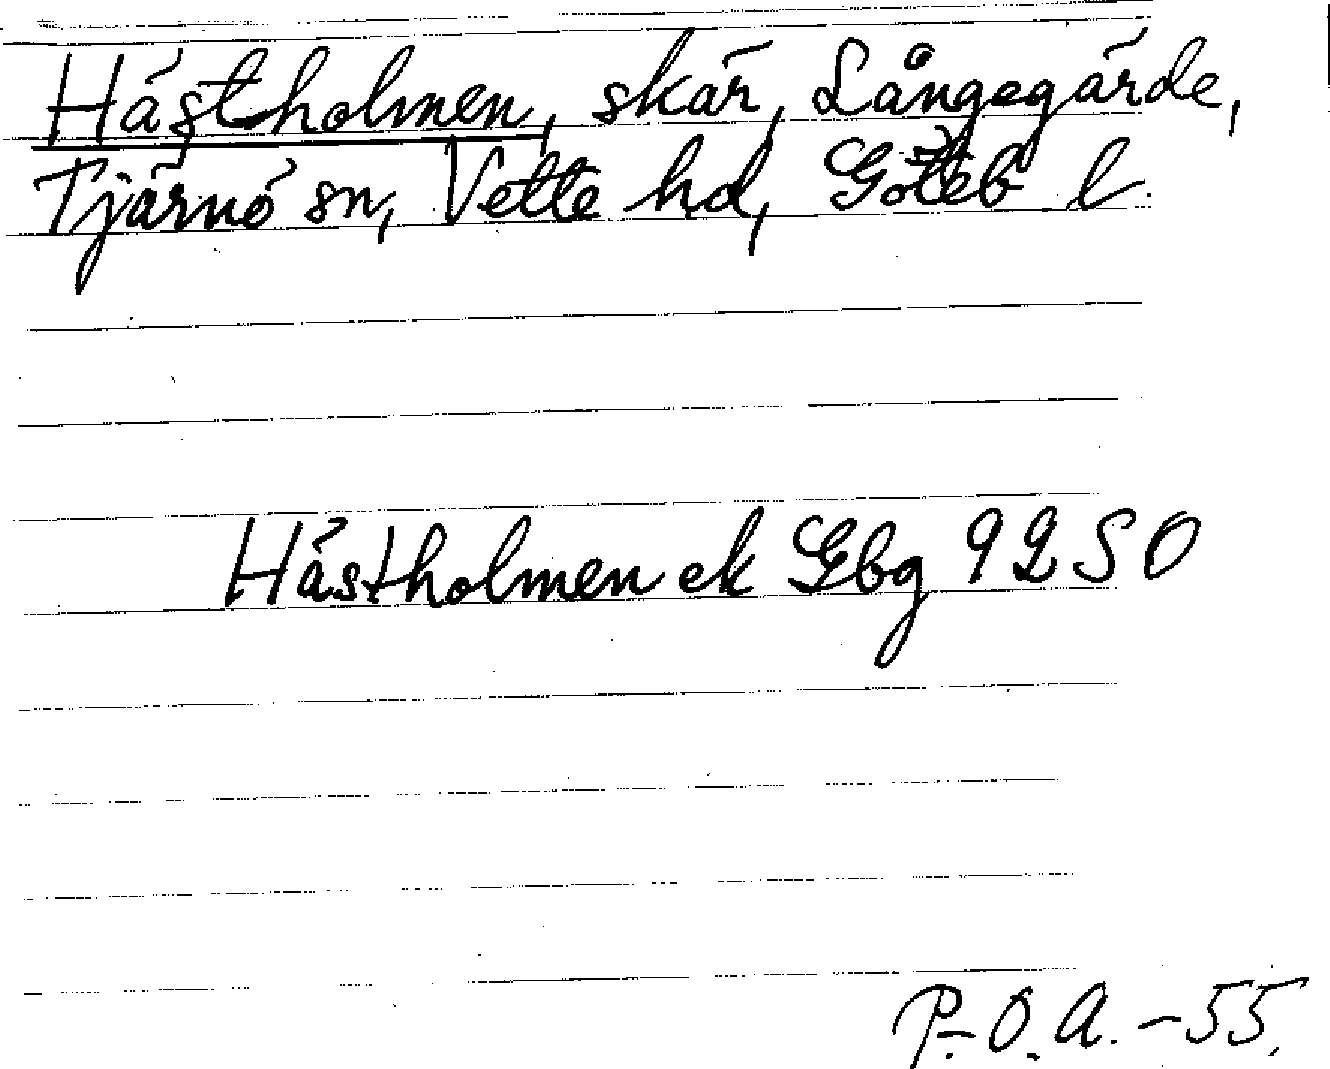 Hästholmen, skär, Långegärde,
Tjärnö sn, Vette hd, Göteb l.
Hästholmen ek Gbg 9250
P.-O. A. -55.